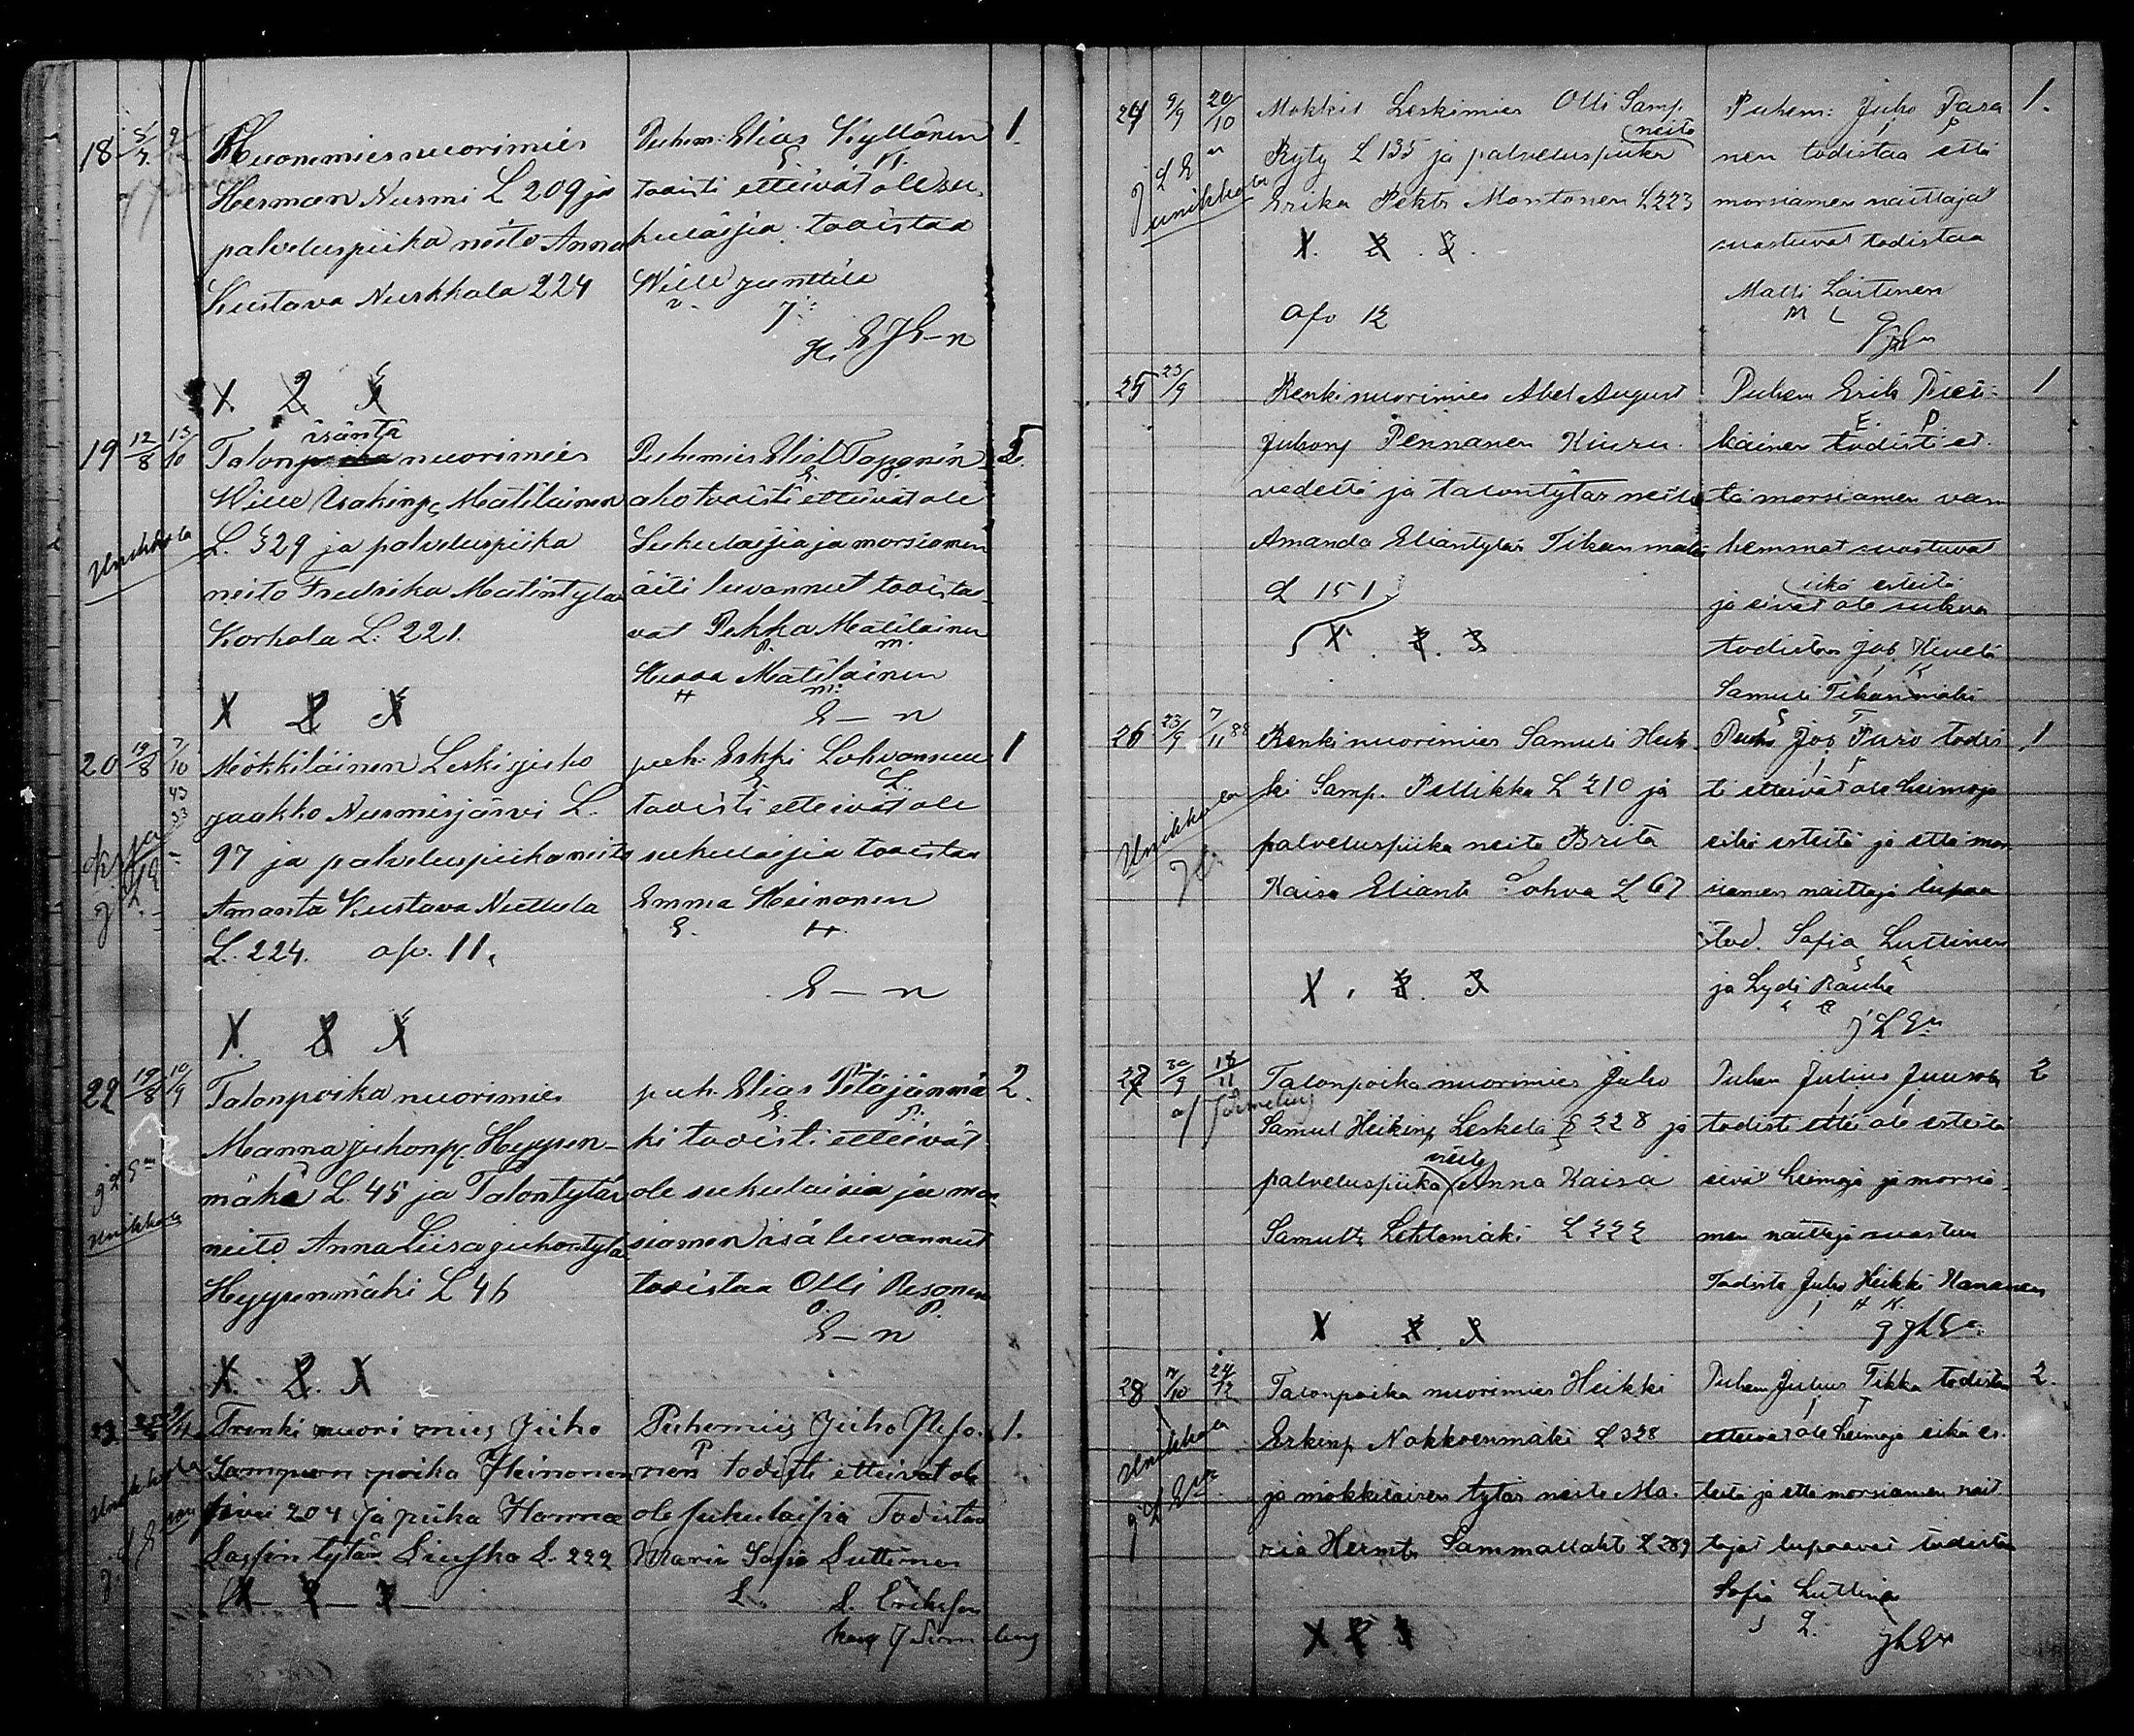 18
Huonemies nuorimies
Herman Nurmi L 209 ja
palveluspiika neito Anna
Kustava Nurkkala 224
X. 2 X
Puhem: Elias Kyllönen
E K.
toisti etteivät ole su-
kulaisia todistaa
Wille junttila
E J E-n
1.
19 12/8 13/10
isäntä
Talonpoika nuorimies
Wille Isakinp. Matilainen
L. 329 ja palveluspiika
neito Fredrika Matintytär
Korhola L: 221.
X 2 X
Puhemies Eliot Tapanin
aho todisti etteivät ole
Sukulaisia ja morsiamen
äiti luvannut todista-
vat Pekka Matilainen
P. M.
Matilainen
H M:
E-n
2.
Unikkola
20 19/8 7/10
Mökkiläinen Leski juho
jaakko Nurmisjärvi L.
97 ja palveluspiika neito
Amanta Kustava Nuttula
L. 224. afv. 11.
X. 2 X
puh: Erkki Lohvansuu
E L.
todisti etteivät ole
sukulaisia todistaa
Emma Heinonen
E. H.
E-n
1
22 19/8 10/9
Talonpoika nuorimies
Manna juhonp. Hyypen-
mäki L. 45 ja Talontytär
neito Anna Liisa juhontytär
Hyypenmäki L 46
X. 2. X
puh. Elias Petäjänmä
E. P.
ki todisti etteivät
ole sukulaisia ja mor
siamen isä luvannut
todistaa Olli Pesonen
O. P.
E-n
2.
Unikkola
23
Trenki nuori mies Juho
Sampan poika Heinonen
sivu 204 ja piika Hanna
tytär L. 222
X - 2 - 3 -
Puhemies Juho Peso-
nen todisti etteivät ole
ole sukulaisia Todistaa
Maria Sofia Luttinen
L. L. Eriksson
1.
24 9/9 20/10
Mökkil Leskimies Olli Samp.
neito
Ryty L 135 ja palveluspiika
Erika Pekts Montonen L 223
X. 2. 3.
afv 12
Puhem: Juho Pasa
J P
nen todistaa että
morsiamen naittajat
suostuvat todistaa
Matti Laitinen
M L
1.
25 23/9
Renki nuorimies Abel August
Juhonp Pennanen Kiuru-
vedeltä ja talontytär neito
Amanda Eliantytär Tikanmäki
L 151
X. 2. 3
Puhem Erik Pieti-
E. P.
käinen todisti et-
tä morsiamen van
hemmat suostuvat
eikä esteitä
ja eivät ole sukua
todistaa Job. Kivelä
J K
Samuli Tikanmäki
S T
1
26 23/9 7/11 88
Renki nuorimies Samuli Heik-
ki Samp. Pellikka L 210 ja
palveluspiika neito Brita
Kaisa Eliants Lohva L 67
X. 2. 3
Puh. Job Puro todis
J P
ti etteivät ole heimoja
eikä esteitä ja että mor
siamen naittaja lupaa
tod. Sofia Luttinen
S L
ja Lydi Rauha
L R
J L En
1
Unikkola
27 30/9 18/11
Talonpoika nuorimies Juho
Samul Heikinp Leskelä L 228 ja
neito
palveluspiika Anna Kaisa
Samults Lehtomäki L 222
X 2 3
Puhem Julius Juusola
J J
todisti ettei ole esteitä
eivät heimoja ja morsia-
men naittaja suostuu
Todista Juho Heikki Kananen
J H K.
2
28 7/10 24/12
Talonpoika nuorimies Heikki
Erkinp Nokkoenmäki L 328
ja mökkiläisen tytär neito Ma-
ria Hermts Sammallahti L 289
X. 2. 3
Puhem Julius Tikka todistaa
J T
etteivät ole heimoja eikä es-
teitä ja että morsiamen nait
tajat lupaavat todistaa
Sofia Luttinen
S L.
2.
Unikkola